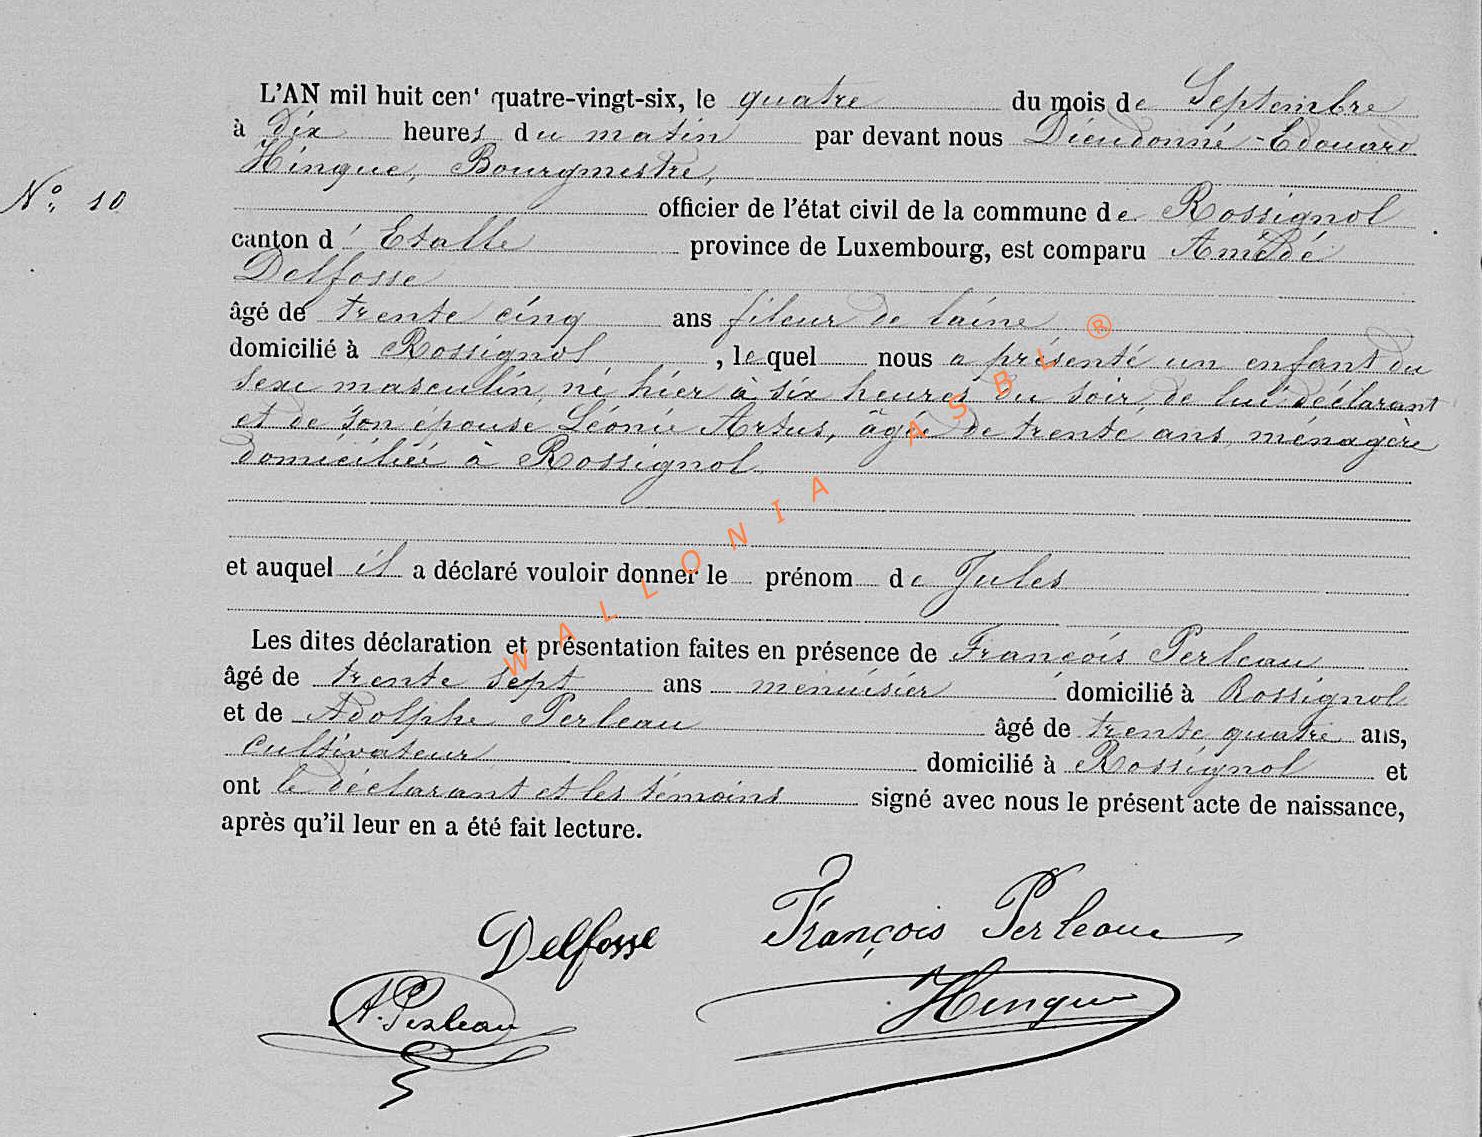 L'AN mil huit cent quatre-vingt-six, le quatre du mois de Septembre
à dix heures du matin par devant nous Dieudonné-Edouard
Hinque, Bourgmestre,
N° 10
officier de l'état civil de la commune de Rossignol
canton d'Etalle province de Luxembourg, est comparu Amédé
Delfosse
âgé de trente cinq ans fileur de laine
domicilié à Rossignol, lequel nous a présenté un enfant du
sexe masculin, né hier à six heures du soir, de lui déclarant
et de son épouse Léonie Artus, âgée de trente ans, ménagère
domiciliée à Rossignol
et auquel il a déclaré vouloir donner le prénom de Jules
Les dites déclaration et présentation faites en présence de François Perleau
âgé de trente sept ans menuisier domicilié à Rossignol
et de Adolphe Perleau âgé de trente quatre ans,
cultivateur domicilié à Rossignol et
ont le déclarant et les témoins signé avec nous le présent acte de naissance,
après qu'il leur en a été fait lecture.
Delfosse François Perleau
A. Perleau Hinque
WALLONIA ASBL ®